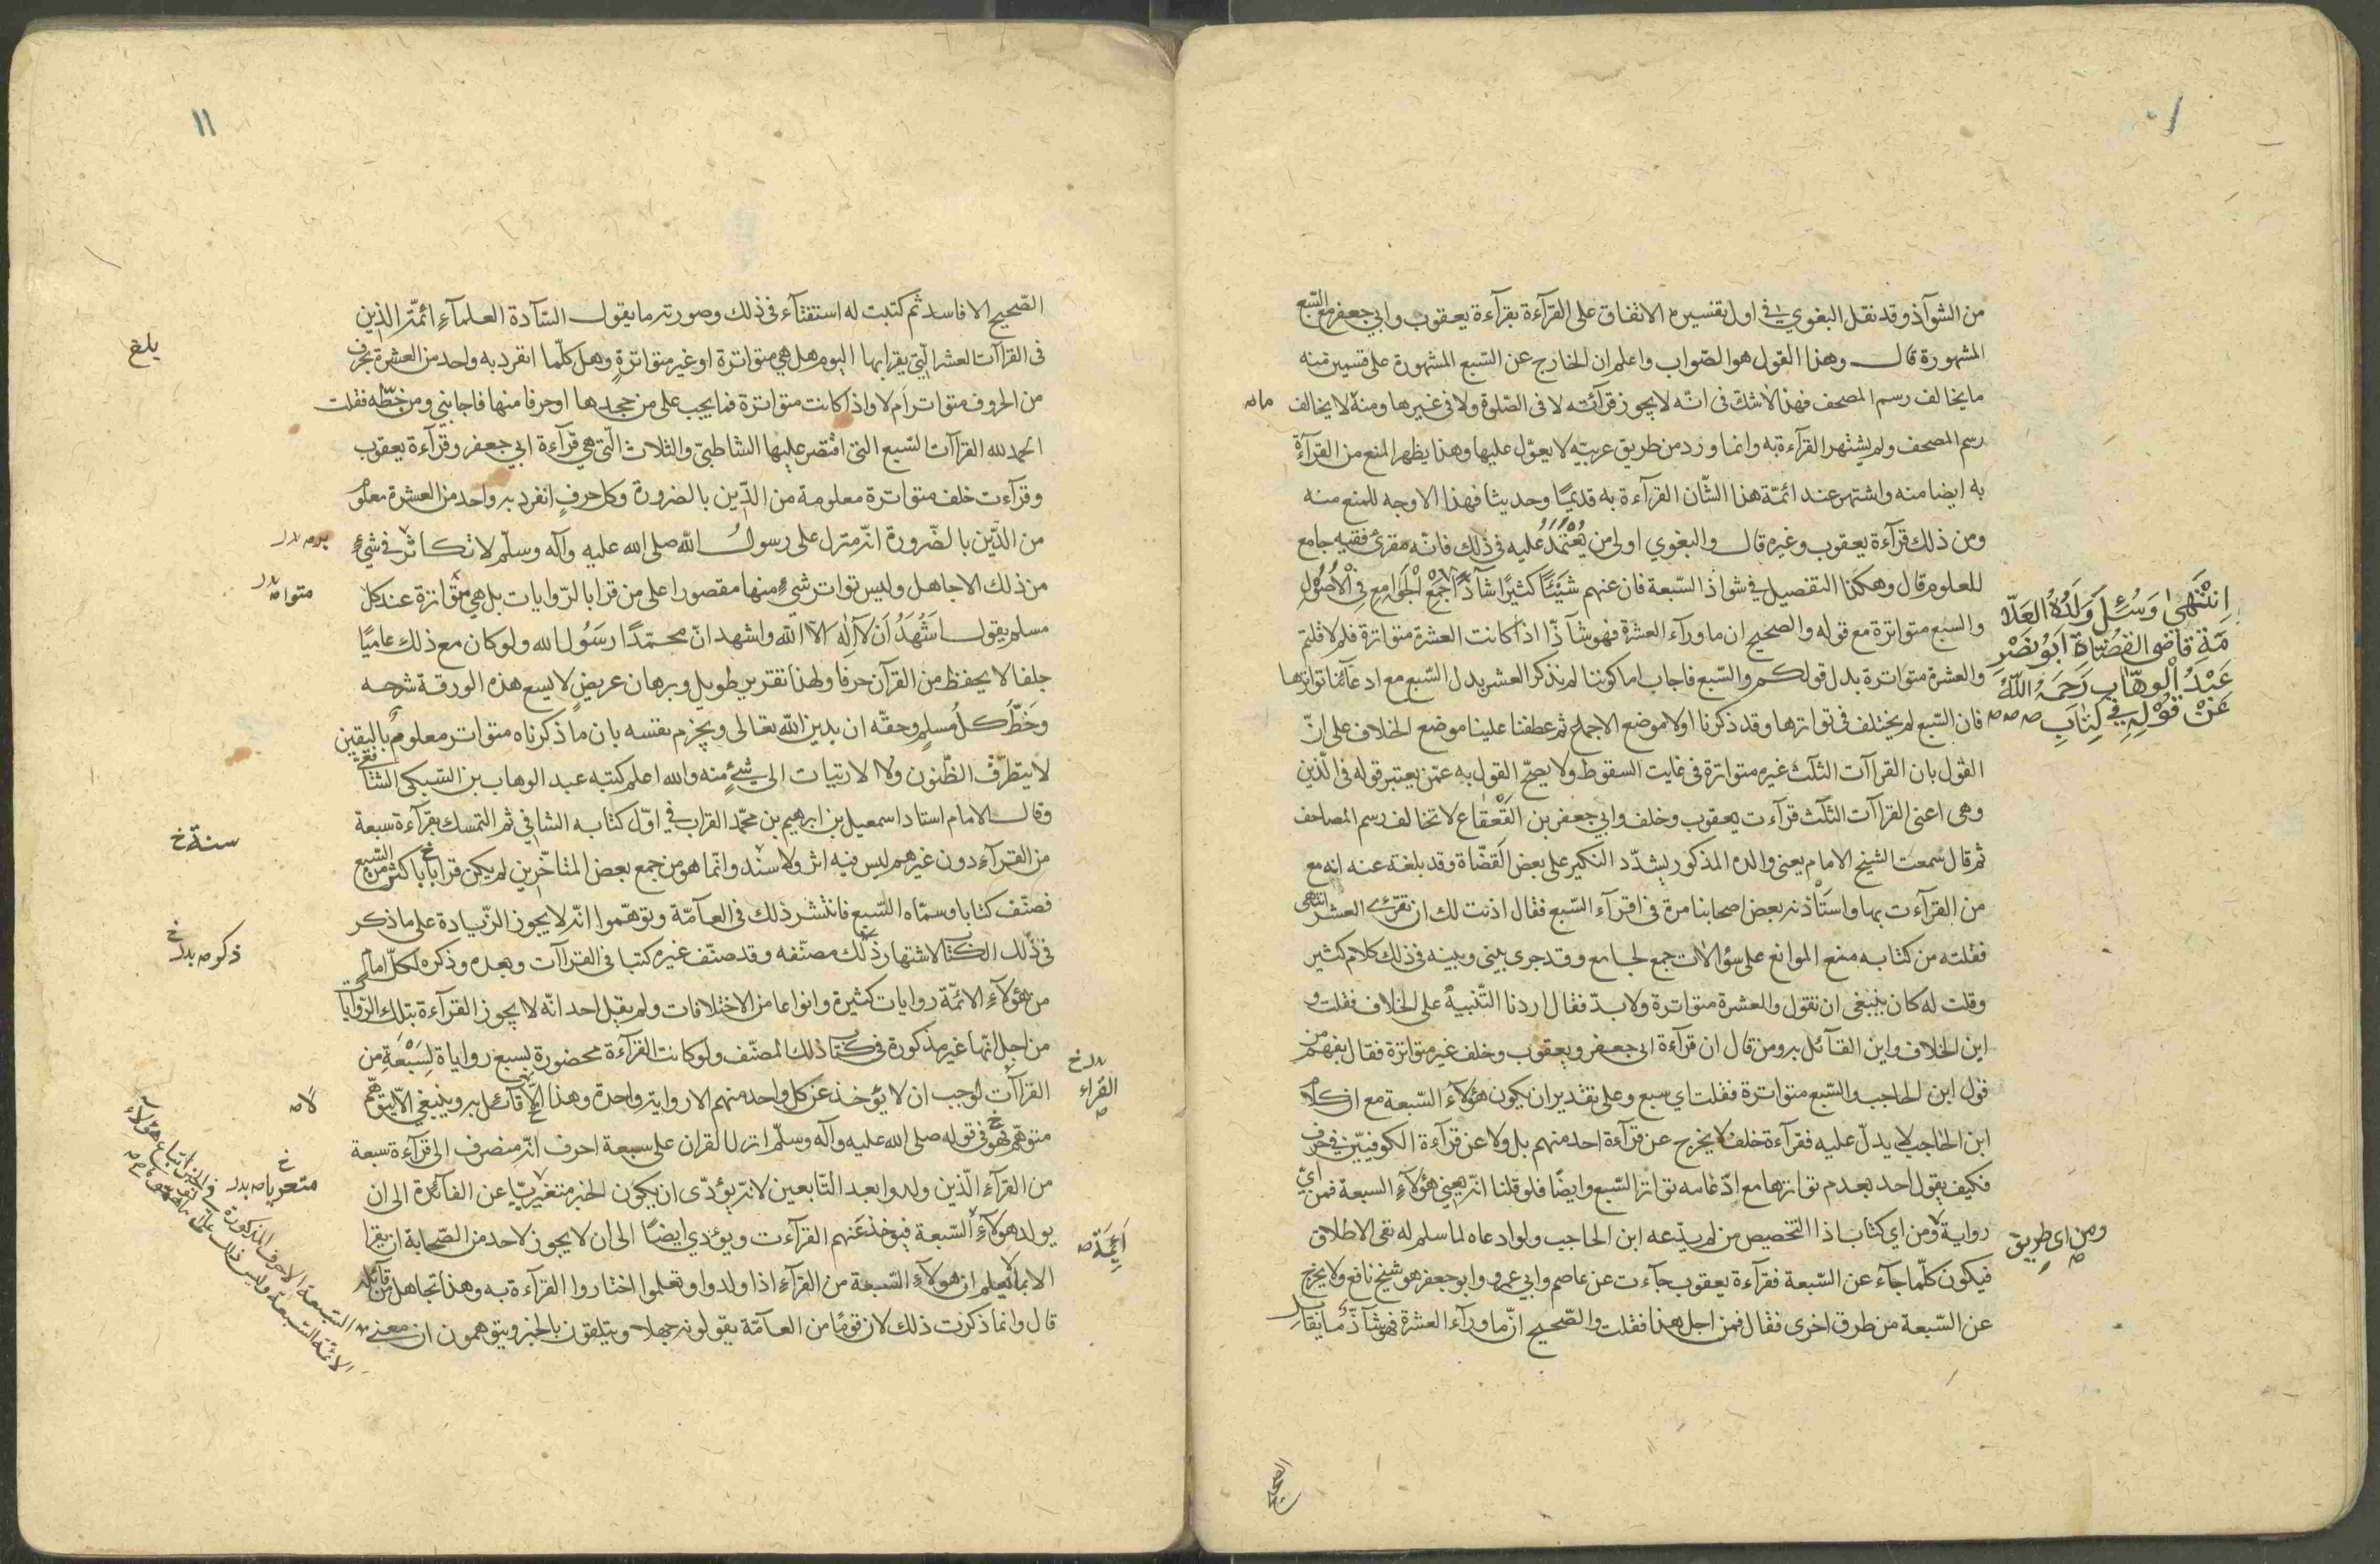 ١٠
من الشوآذ وقد نقل البغوي في اول تفسيره الاتفاق على القرآءة بقرآءة يعقوب وابي جعفر مع السّبع
المشهورة قال وهذا القول هو الصّواب واعلم ان الخارج عن السّبع المشهورة على قسمين منه
ما يخالف رسم المصحف فهذا لا شكّ فى انّه لا يجوز قرآئته لا فى الصّلوة ولا فى غيرها ومنه لا يخالف
ما صه
رسم المصحف ولم يشتهر القرآءة به وانما ورد من طريق غريبه لا يعوّل عليها وهذا يظهر المنع من القرآءة
به ايضا منه واشتهر عند ائمّة هذا الشّان القرآءة به قديمًا وحديثا فهذا لا وجه للمنع منه
ومن ذلك قرآءة يعقوب وغيره قال والبغوي اولى من يُعْتَمَدُ عليه في ذلك فانّه مقرئ فقيه جامع
للعلوم قال وهكذا التفصيل في شواذ السّبعة فان عنهم شَيْئًا كثيرًا شآذًّا جَمْع الْجَوَامِعِ فِى الْأُصُوْلِ
اِنْتَهٰى وَسُئِلَ وَلَدُهُ العَلّا
مَةِ قاضى القضاة ابو نصْرِ
عَبْدُ الْوهّابِ رَحِمَهُ اللّٰهُ
عَنْ قَوْلِهِ في كِتابِ صه صه
والسبع متواترة مع قوله والصحيح ان ما ورآء العشرة فهو شآذّا اذا كانت العشرة متواترة فلم لا قلتم
والعشرة متواترة بدل قولكم والسّبع فاجاب اما كوننا لم نذكر العشر بدل السّبع مع ادعآئنا تواترها
فان السّبع لم يختلف فى تواترها وقد ذكرنا اولا موضع الاجماع ثم عطفنا علينا موضع الخلاف على انّ
القول بان القراآت الثلث غير متواترة فى غايت السقوط ولا يصحّ القول به عمّن يعتبر قوله فى الدّين
وهى اعنى القراآت الثلث قرآءت يعقوب وخلف وابي جعفر بن القَعْقاع لا تخالف رسم المصاحف
ثم قال سمعت الشيخ الامام يعنى والده المذكور يشدّد النكير على بعض القضّاة وقد بلغته عنه انه مع
من القرآءت بها واستأذنه بعض اصحابنا مرة فى اقرآء السّبع فقال اذنت لك ان تقرئ العشر انتهى
فقلته من كتابه منع الموانع على سؤالات جمع لجامع وقد جرى بينى وبينه فى ذلك كلام كثير
وقلت له كان ينبغى ان نقول والعشرة متواترة ولا بدّ فقال اردنا التّنبيهُ على الخلاف فقلت و
اين الخلاف واين القآئل به ومن قال ان قرآءة ابى جعفر ويعقوب وخلف غير متواترة فقال يفهم من
قول ابن الحاجب والسّبع متواترة فقلت اي سبع وعلى تقدير ان يكون هؤلآء السّبعة مع ان كلام
ابن الحاجب لا يدلّ عليه فقراءة خلف لا يخرج عن قرآءة احد منهم بل ولا عن قرآءة الكوفيّين فى حرف
فكيف يقول احد بعدم تواترها مع ادّعآمه تواتر السّبع وايضا فلو قلنا انّه يعني هؤلآء السبعة فمن ايّ
رواية ومن اي كتاب اذا التخصيص من لم يدّعه ابن الحاجب ولو ادعاه لما سلم له بقى الاطلاق
ومن اى طريق صه
فيكون كلّما جآء عن السّبعة فقرآءة يعقوب جآءت عن عاصم وابي عمرو وابو جعفر هو شيخ نافع ولا يخرج
عن السّبعة من طرق اخرى فقال فمن اجل هذا فقلت والصّحيح انّ ما ورآء العشرة فهو شآذّ ما يقابل
الصحيح
١١
الصّحيح الا فاسد ثم كتبت له استفتآء فى ذلك وصورته ما يقول السّآدة العلمآء ائمّة الدّين
فى القراآت العشر الّتي يقرا بها اليوم هل هي متواترة او غير متواترةٍ وهل كلّما انفرد به واحد من العشرة بحرف
بلغ
من الحروف متواتر ام لا واذا كانت متواترة فما يجب على من جحدها او حرفا منها فاجابني ومن خطّه فقلت
الحمد لله القراآت السّبع التى اقتصر عليها الشاطبيّ والثلاث الّتي هي قرآءة ابي جعفر وقرآءة يعقوب
وقرآءت خلف متواترة معلومة من الدّين بالضرورة وكل حرفٍ انفرد به واحد من العشرة معلوم
من الدّين بالضّرورة انّه منزل على رسول اللّه صلى الله عليه وآله وسلّم لا تكاثر في شيءٍ
من ذلك الا جاهل وليس تواتر شىء منها مقصورا على من قرا بالرّوايات بل هي متواترة عند كل
متوا صه
مسلم يقول اَشْهَدُ اَنْ لَآ اِلٰهَ الّا اللّه واشهد انّ محمّدًا رسَوُل الله ولو كان مع ذلك عاميًا
جلفا لا يحفظ من القرآن حرفا ولهذا تقرير طويل وبرهان عريض لا يسع هذه الورقة شرحه
وَحَظّ كلّ مُسلمٍ وحقّه ان يدين اللّه تعالى ويجزم نفسه بان ما ذكرناه متواتر معلوم باليقين
لا يتطرّق الظّنون ولا الارتيات الى شىءٍ منه والله اعلم كتبه عبد الوهاب بن السّبكى الشافعى
وقال الامام استاد اسمعيل بن ابرهيم بن محمّد القراب فى اوّل كتابه الشافي ثم التمسك بقرآءة سبعة
من القرآء دون غيرهم ليس فيه اثر ولا سند وانّما هو من جمع بعض المتأخّرين لم يكن قرا باكثر من السّبع
سنة خ
فصنّف كتابا وسمّاه السّبع فانتشر ذلك فى العآمّة وتوهّموا انّه لا يجوز الزّيادة على ما ذكر
فى ذلك الكتاب لاشتهار ذلك مصنّفه وقد صنّف غيره كتبا فى القراآت وبعده وذكره لكلّ امام
ذكر صه بدر خ
من هؤلآء الائمّة روايات كثيرة وانواعا من الاختلافات ولم يقل احد انّه لا يجوز القرآءة بتلك الرّوايات
من اجل انّها غير مذكورة فى كتاب ذلك المصنّف ولو كانت القرآءة محضورة بسبع رواياة لِسَبْعَةٍ من
القرآء صه
القرآت لوجب ان لا يؤخذ عن كل واحد منهم الا رواية واحدة وهذا لا قآئل به وينبغي الّا يتوهّم
لا صه
متوهّم فى قوله صلى الله عليه وآله وسلّم انزل القران على سبعة احرف انّه منصرف الى قرآءة سبعة
من القرآء الّذين ولدوا بعد التّابعين لانّه يؤدّى ان يكون الخبر متغيريّا عن الفآئدة الى ان
متعريا صه بدر خ
يولد هؤلآء السّبعة فيؤخذ عنهم القرآءت ويؤدي ايضًا الى ان لا يجوز لاحد من الصّحابة ان يقرا
اَئِمّة صه
الا بما يعلم ان هولآء السّبعة من القرآء اذا ولدوا وتعلموا اختاروا القرآءة به وهذا تجاهل من قآئله
قال وانما ذكرت ذلك لان قومًا من العآمّة يقولونه جهلا ويتلقون بالخبر ويتوهمون ان معنى
السّبعة الاحرف المذكورة فى الخبر اتباع هؤلآء
الائمّة السّبعة وليس ذلك على ما توهّموه صه